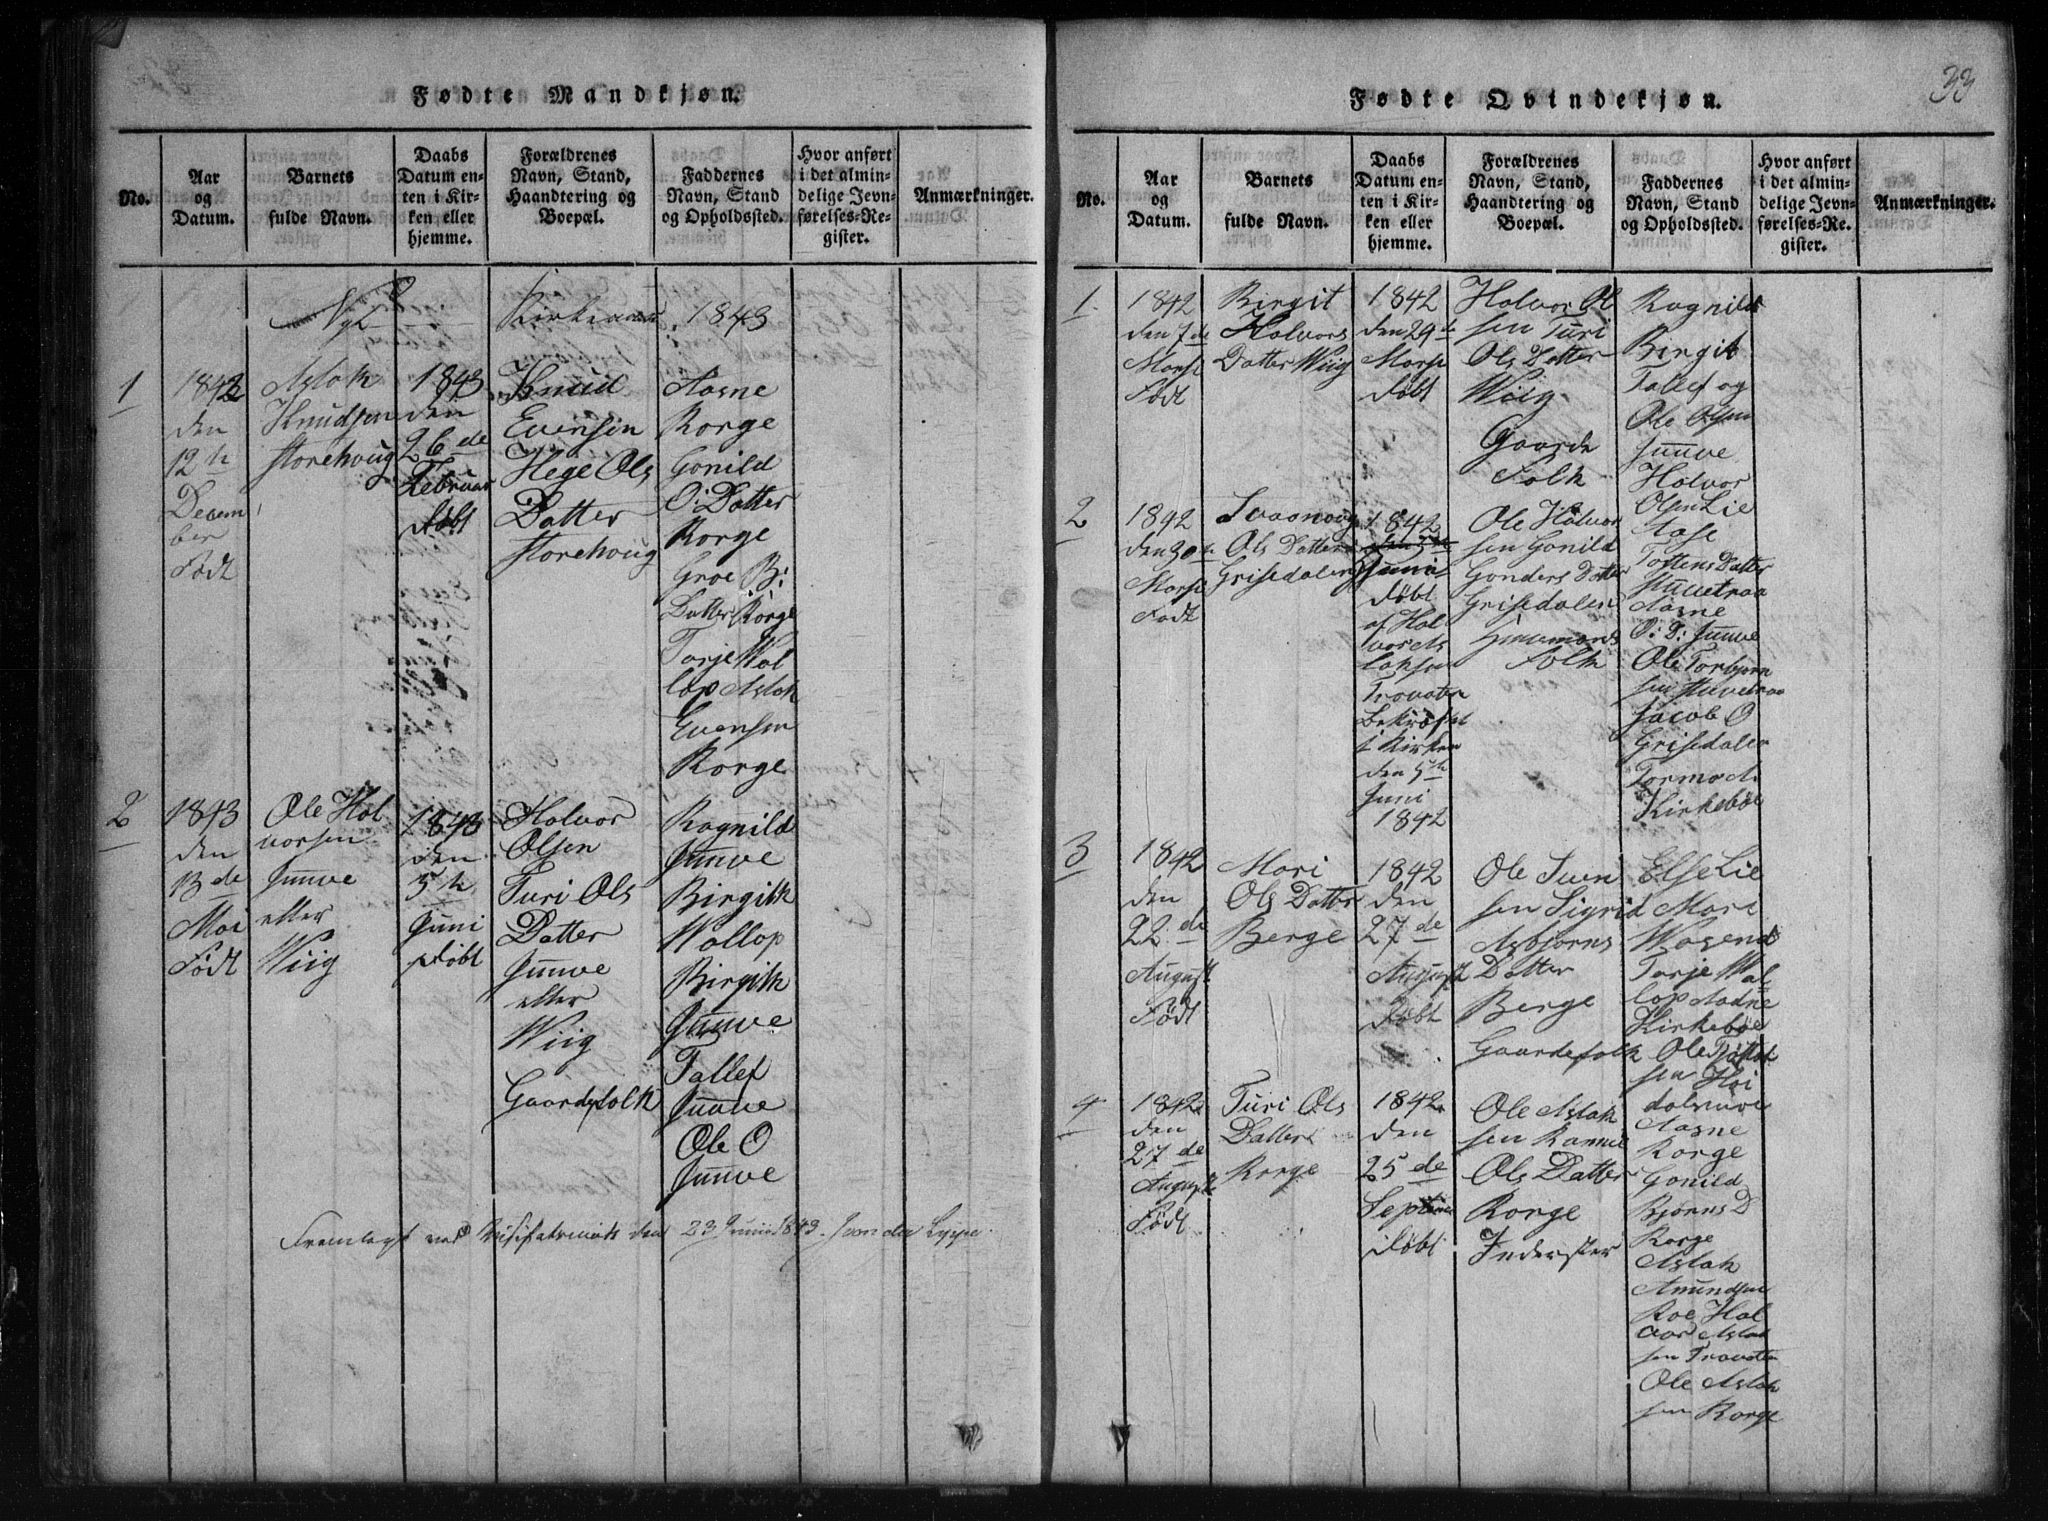 Fødte Mandkjøn.
No.
Aar
og
Datum.
Barnets
fulde Navn.
Daabs
Datum en-
ten i Kir-
ken eller
hjemme.
Forældrenes
Navn, Stand,
Haandtering og
Boepæl.
Faddernes
Navn, Stand
og Opholdssted.
Hvor anført
i det almin-
delige Jevn-
førelses-Re-
gister.
Anmærkninger.
Nyt Kirkeaar 1843
1
1842
den
12te
Decem
ber
Født
Aslak
Knudsen
Storehoug
1843
den
26de
Februar
Døbt
Knud
Evensen
Hege Ols
Datter
Storehoug
Aasne
Rorge
Gonild
O: Datter
Rorge
Groe B:
Datter Rorge
Torje Wal
lop Aslak
Evensen
Rorge
2
1843
den
13de
Mai
Født
Ole Hal
vorsen
Juuve
eller
Wiig
1843
den
5te
Juni
Døbt
Halvor
Olsen
Turi Ols
Datter
Juuve
eller
Wiig
Gaardefolk
Ragnild
Juuve
Birgith
Wallop
Birgith
Juuve
Tallef
Juuve
Ole O
Juuve
Fremlagt ved Visitatsen den 23 Junii 1843.
33
Fødte Qvindekjøn.
No.
Aar
og
Datum.
Barnets
fulde Navn.
Daabs
Datum en-
ten i Kir-
ken eller
hjemme.
Forældrenes
Navn, Stand,
Haandtering og
Boepæl.
Faddernes
Navn, Stand
og Opholdssted.
Hvor anført
i det almin-
delige Jevn-
førelses-Re-
gister.
Anmærkninger.
1.
1842
den 7de
Marsi
Født
Birgit
Halvors
Datter Wiig
1842
den 29de
Marsi
Døbt
Halvor Ol
sen Turi
Ols Datter
Wiig
Gaarde
Folk
Ragnild
Birgit
Tallef og
Ole Olsen
Juuve
Halvor
Olsen Lie
2
1842
den 30te
Marsi
Født
Svaanoug
Ols Datter
Grisedalen
1842
den 5te
Juni
Døbt
af Hal
vor As
laksen
Trovaten
Bekræftet
i Kirken
den 5te
Juni
1842
Ole Halvor
sen Gonild
Gonders Datter
Grisedalen
Huusmands
Folk
Aase
Tostens Datter
Stuvetraa
Aasne
O: D: Juuve
Ole Torbjørn
sen Stuvetraa
Jacob O
Grisedalen
Tormo A
Kirkebøe
3
1842
den
22de
August
Født
Mari
Ols Datter
Berge
1842
den
27de
August
Døbt
Ole Sven
sen Sigrid
Asbjørns
Datter
Berge
Gaardefolk
Else Lie
Mari
Wasend
Torje Wal
lop Aadne
Kirkebøe
Ole
sen Høi
dalsmoe
4
1842
den
27de
August
Født
Turi Ols
Datter
Rorge
1842
den
25de
September
Døbt
Ole Aslak
sen Rannei
Ols Datter
Rorge
Inderster
Aasne
Rorge
Gonild
Bjørns D
Rorge
Aslak
Amundsen
Roe Hal
vor Aslak
sen Trovaten
Ole Aslak
sen Rorge